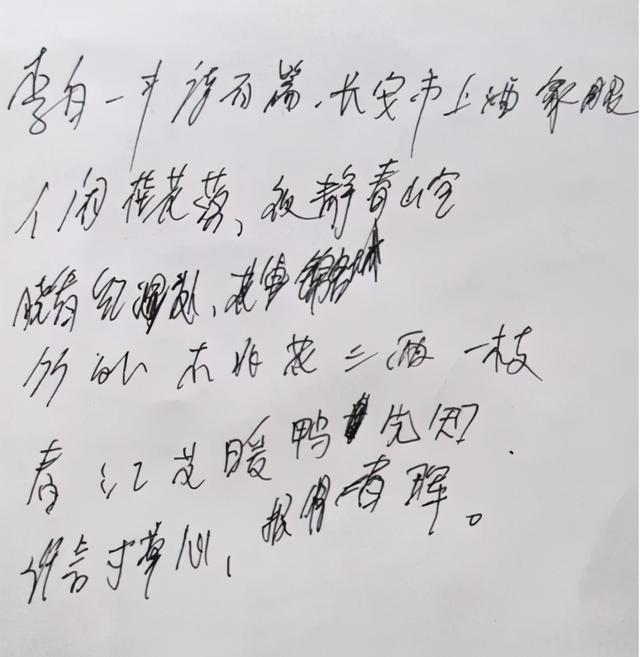 李白一斗诗百篇.长安市上酒家眠
人闲桂花落、夜静春山空
晓看红湿处、花重锦官城
竹外花三两一枝
春江暖鸭先知.
谁言寸草心,报得春晖。